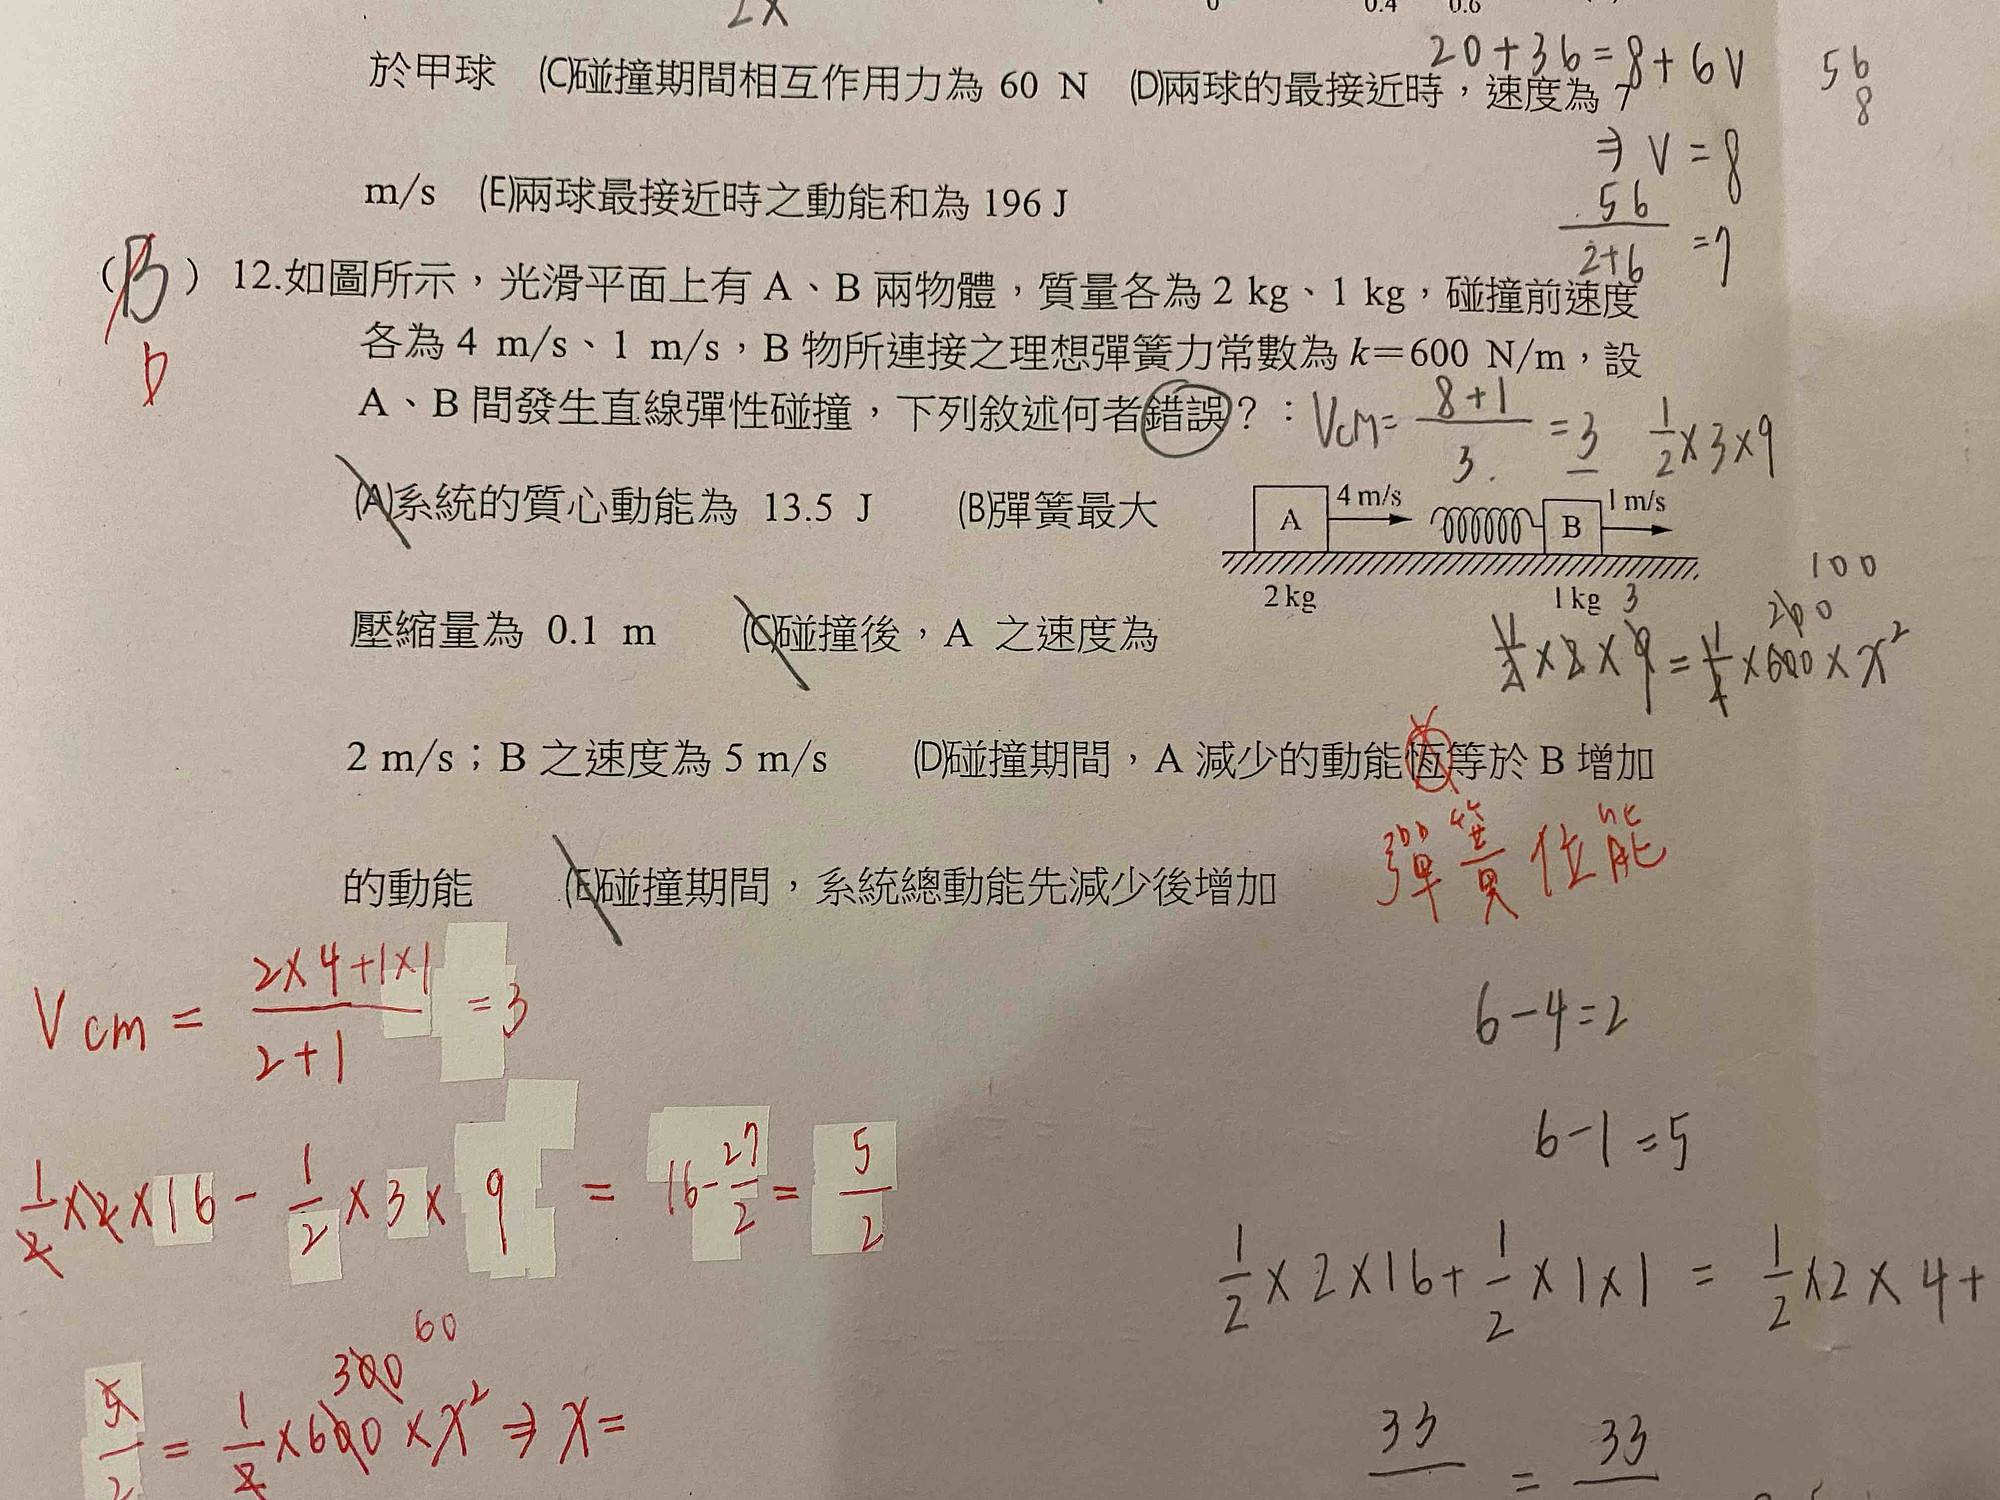 2x
0 0.4 0.6
20+36=8+6V
56
8
於甲球 (C)碰撞期間相互作用力為 60 N (D)兩球的最接近時,速度為 7
⇒ V=8
m/s (E)兩球最接近時之動能和為 196 J
56/2+6 =7
(B) 12.如圖所示,光滑平面上有 A、B 兩物體,質量各為 2 kg、1 kg,碰撞前速度
D
各為 4 m/s、1 m/s,B 物所連接之理想彈簧力常數為 k=600 N/m,設
A、B 間發生直線彈性碰撞,下列敘述何者錯誤?:
Vcm= 8+1/3. =3 1/2×3×9
(A)系統的質心動能為 13.5 J (B)彈簧最大
A 4 m/s B 1 m/s
2 kg 1 kg
壓縮量為 0.1 m (C)碰撞後,A 之速度為
3 200 100
1/2×2×9=1/2×600×x²
2 m/s;B 之速度為 5 m/s (D)碰撞期間,A 減少的動能恆等於 B 增加
彈簧位能
的動能 (E)碰撞期間,系統總動能先減少後增加
Vcm = 2×4+1×1/2+1 =3
6-4=2
6-1=5
1/2×2×16-1/2×3×9 = 16-27/2= 5/2
1/2×2×16+1/2×1×1 = 1/2×2×4+
300 60
5/2 = 1/2×600×x² ⇒ x=
33 = 33